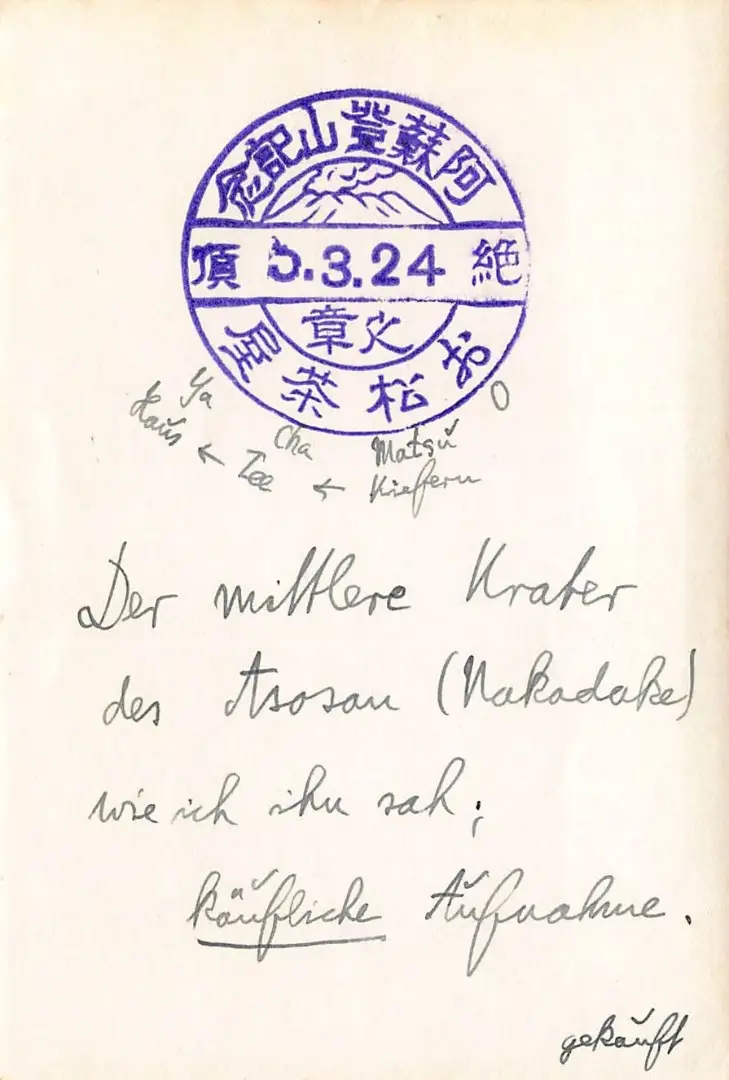 阿蘇登山記念
頂 5.3.24 絶
之章
お松茶屋
Ya Cha Matsu O
Haus ← Tee ← Kiefern
Der mittlere Krater
des Asosan (Nakadake)
wie ich ihn sah;
käufliche Aufnahme.
gekauft